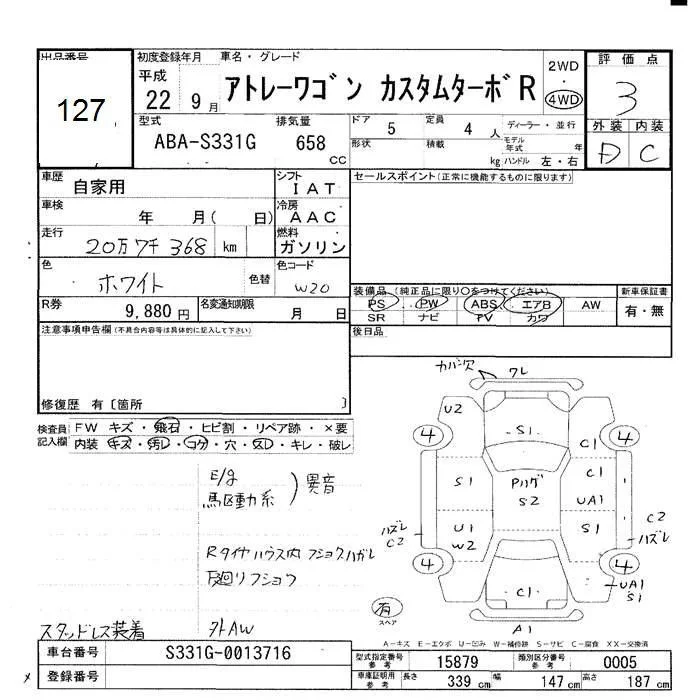 出品番号
127
初度登録年月
平成
22 9月
車名・グレード
アトレーワゴン カスタムターボR
2WD
・
4WD
評価点
3
外装 内装
D C
型式
ABA-S331G
排気量
658
CC
ドア
5
定員
4 人
ディーラー・並行
形状
積載
kg
モデル年式
年
ハンドル 左・右
車歴
自家用
シフト
IAT
車検
年 月( 日)
冷房
AAC
走行
20万7千368 km
燃料
ガソリン
色
ホワイト
色替
色コード
W20
R券
9,880円
名変通知期限
月 日
セールスポイント(正常に機能するものに限ります)
装備品(純正品に限り○をつけてください)
PS PW ABS エアB AW
SR ナビ TV カワ
新車保証書
有・無
後日品
注意事項申告欄(不具合内容等は具体的に記入して下さい)
修復歴 有〔箇所 〕
検査員記入欄
FW キズ・飛石・ヒビ割・リペア跡・×要
内装・キズ・汚レ・コゲ・穴・スレ・キレ・破レ
E/g
駆動系
)異音
Rタイヤハウス内フショクハガレ
下廻リフショク
スタッドレス装着 外AW
カバー欠 ワレ
U2
4
S1
4
C1
S1
Pリング
S2
C1
UA1
ハズレ
C2
U1
W2
S1
C2
ハズレ
4
4
C1
UA1
S1
有
スペア
A1
A-キズ E-エクボ U-凹み W-補修跡 S-サビ C-腐食 XX-交換済
車台番号
S331G-0013716
登録番号
型式指定番号
参考
15879
類別区分番号
参考
0005
車庫証明用
参考
長さ
339 cm
幅
147 cm
高さ
187 cm